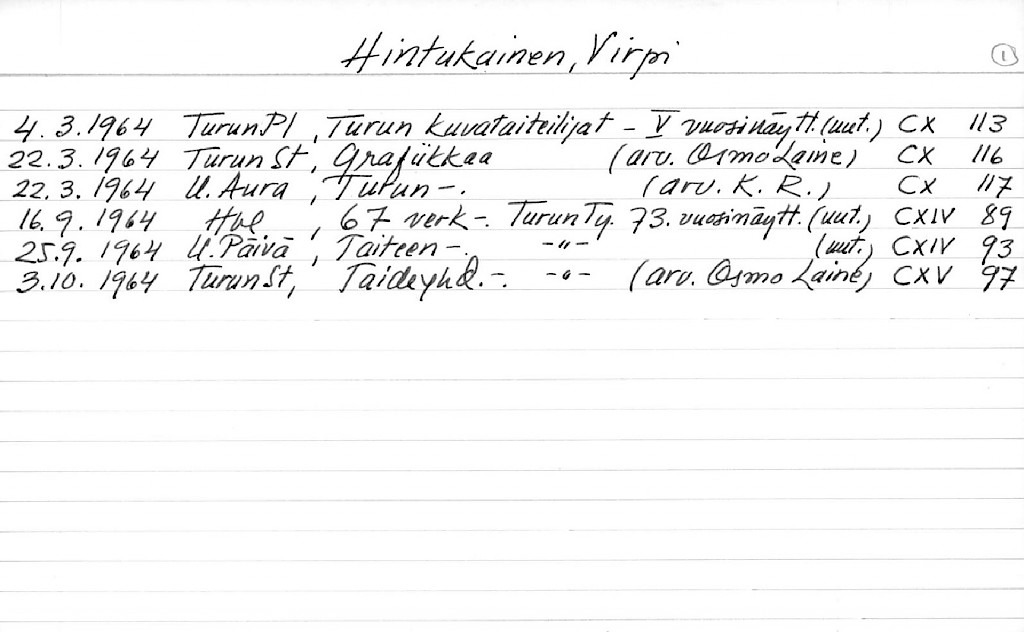 Hintukainen, Virpi 1
4.3.1964 TurunPl, Turun kuvataiteilijat - V vuosinäytt. (uut.) CX 113
22.3.1964 Turun St, Grafiikkaa (arv. Osmo Laine) CX 116
22.3.1964 U. Aura, Turun -. (arv. K. R.) CX 117
16.9.1964 Hbl, 67 verk -. Turun Ty. 73. vuosinäytt. (uut.) CXIV 89
25.9.1964 U. Päivä, Taiteen -. -"- (uut.) CXIV 93
3.10.1964 Turun St, Taideyhd. -. -"- (arv. Osmo Laine) CXV 97